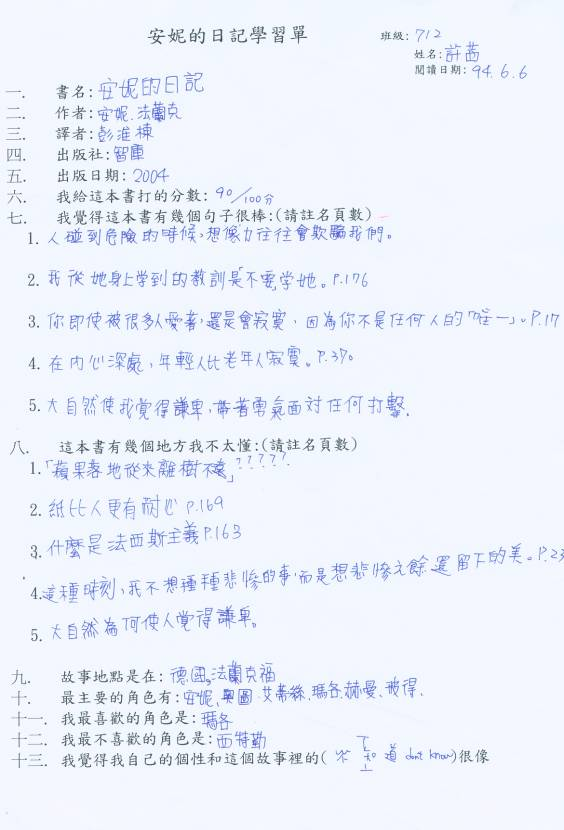 安妮的日記學習單
班級: 712
姓名: 許茜
閱讀日期: 94.6.6
一. 書名: 安妮的日記
二. 作者: 安妮.法蘭克
三. 譯者: 彭淮棟
四. 出版社: 智庫
五. 出版日期: 2004
六. 我給這本書打的分數: 90/100分
七. 我覺得這本書有幾個句子很棒:(請註名頁數)
1. 人碰到危險的時候,想像力往往會欺騙我們。
2. 我從她身上學到的教訓是「不要」學她。P.176
3. 你即使被很多人愛著,還是會寂寞、因為你不是任何人的「唯一」。P.17
4. 在內心深處,年輕人比老年人寂寞。P.370
5. 大自然使我覺得謙卑,帶著勇氣面對任何打擊.
八. 這本書有幾個地方我不太懂:(請註名頁數)
1.「蘋果落地從來離樹不遠」?????.
2. 紙比人更有耐心 P.169
3. 什麼是法西斯主義 P.163
4. 這種時刻,我不想種種悲慘的事,而是想悲慘之餘還留下的美。P.23
5. 大自然為何使人覺得謙卑。
九. 故事地點是在: 德國,法蘭克福
十. 最主要的角色有: 安妮、奧圖、艾蒂絲、瑪各、赫曼、彼得、
十一. 我最喜歡的角色是: 瑪各
十二. 我最不喜歡的角色是: 西特勒
十三. 我覺得我自己的個性和這個故事裡的( 不知道 dont know)很像